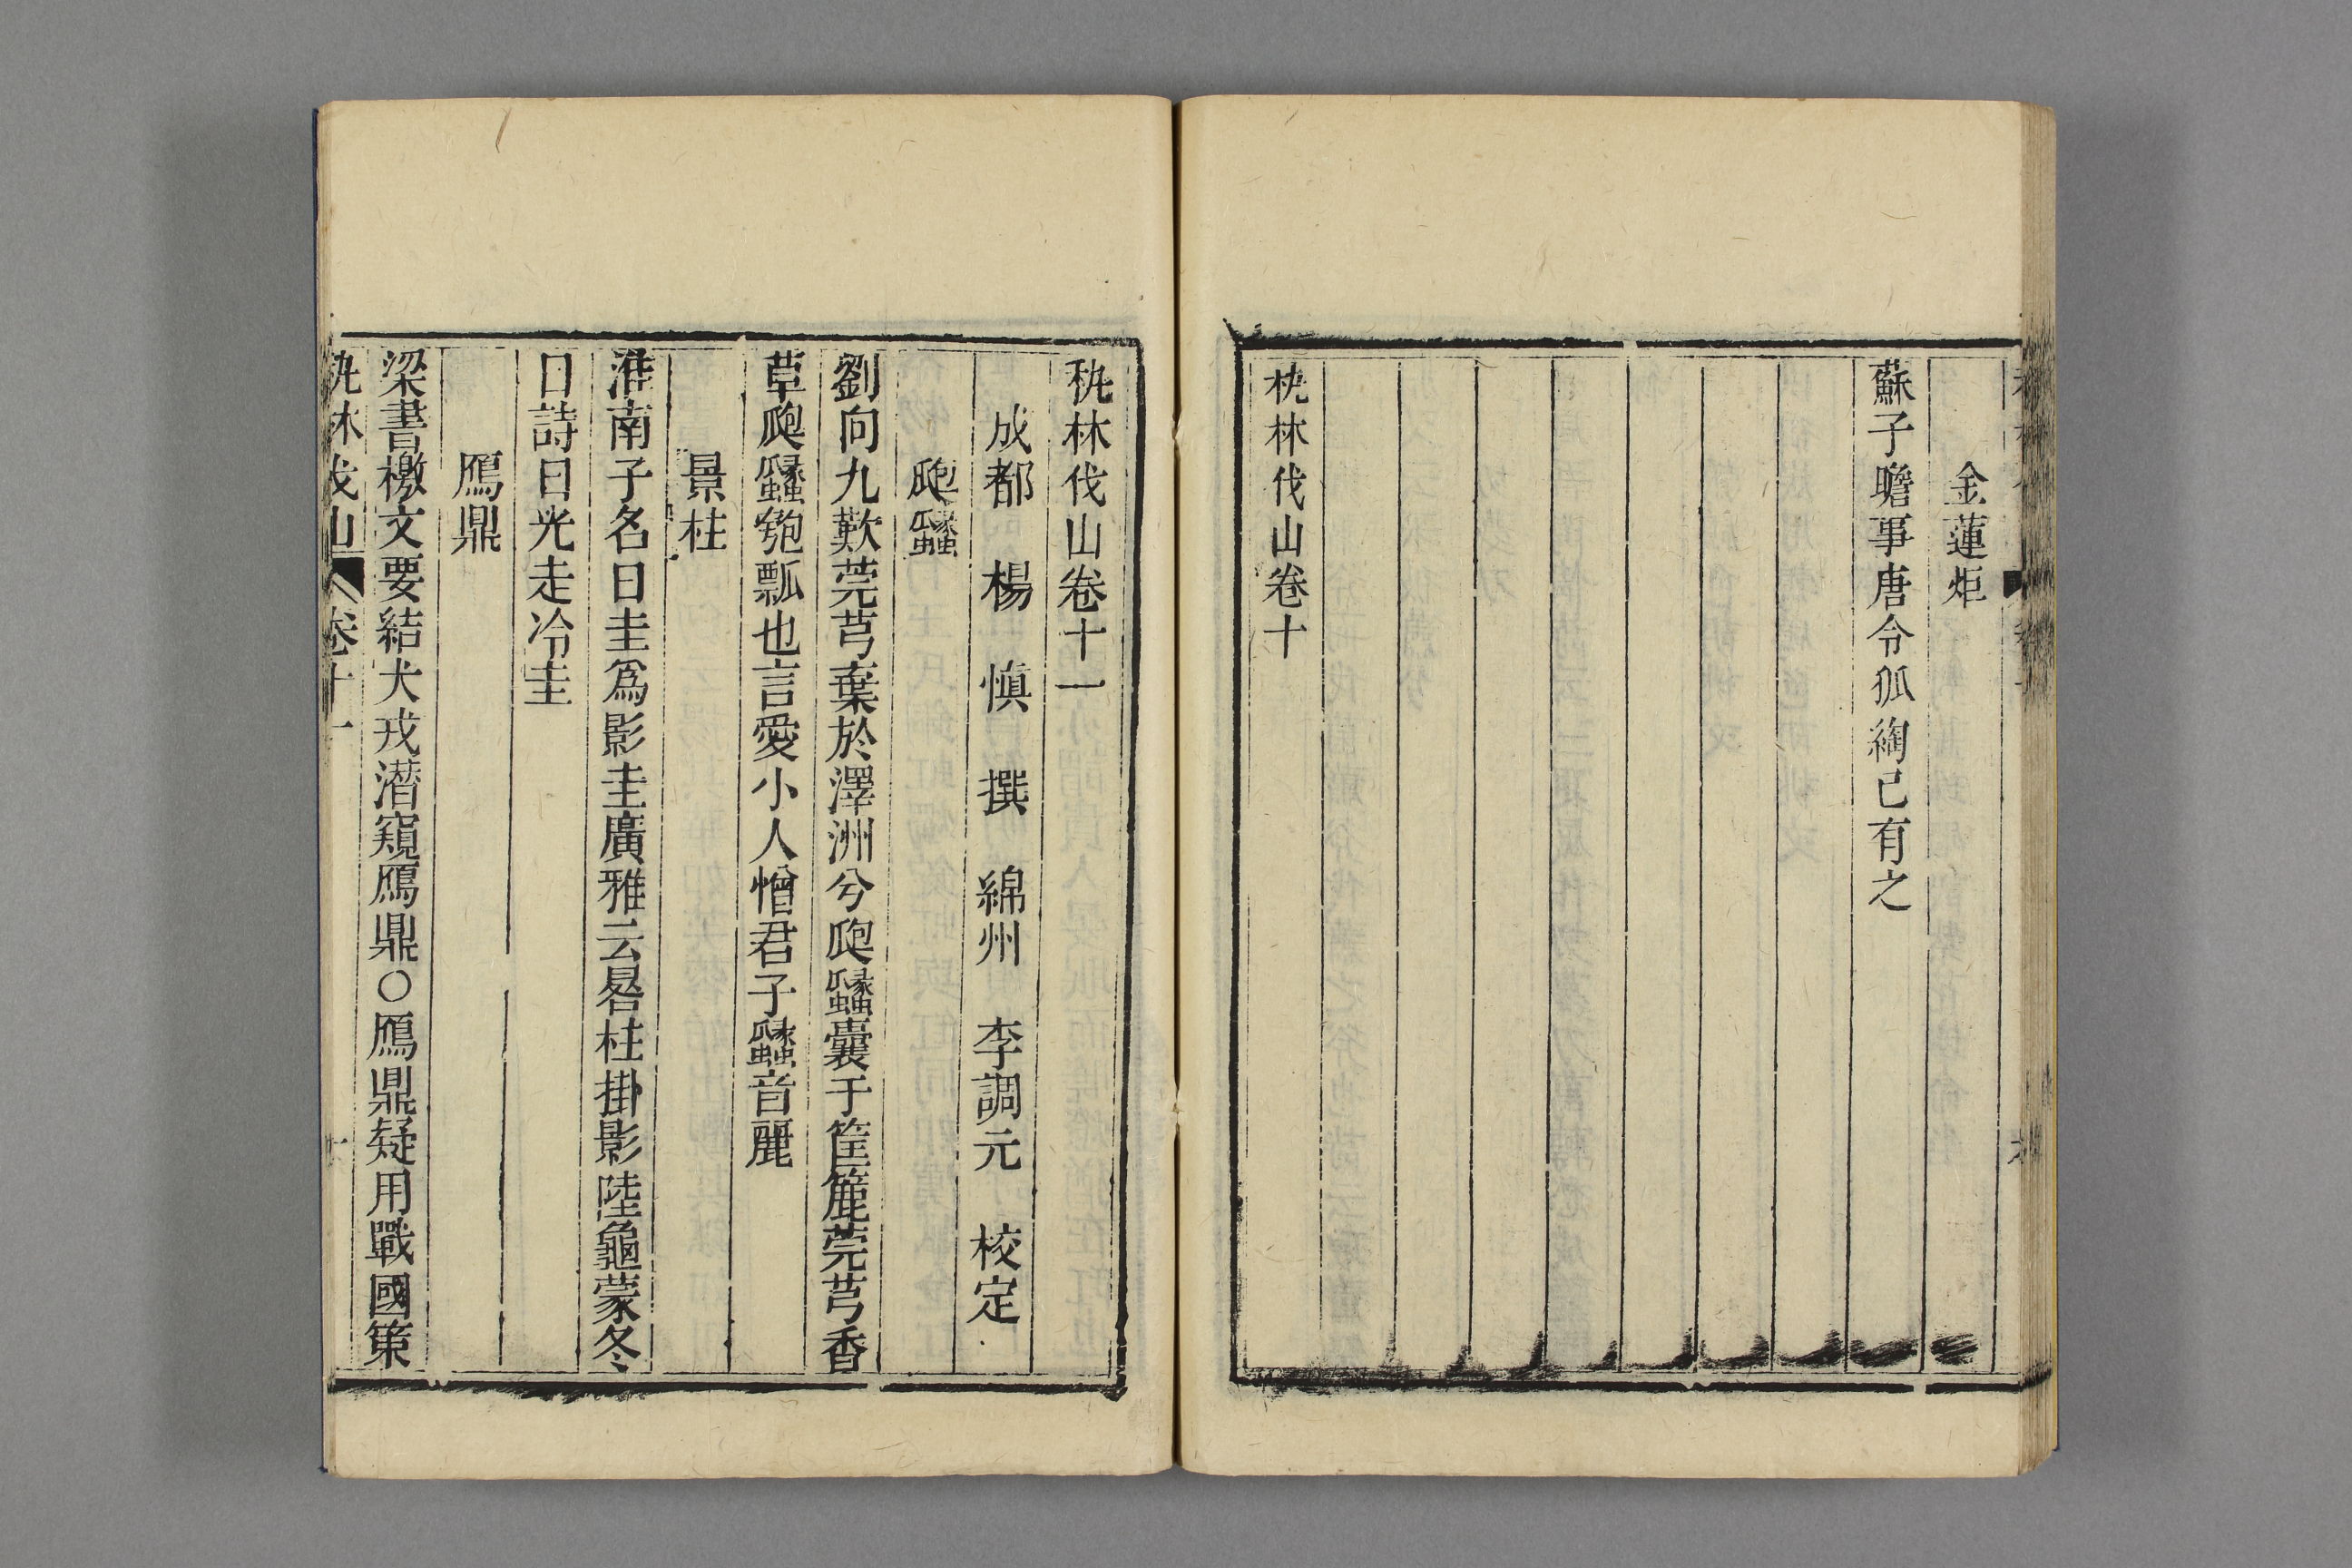 金蓮炬
蘇子瞻事唐令狐綯已有之
秇林伐山卷十
秇林伐山卷十一
成都 楊 慎 撰 綿州 李調元 校定
瓟𤫟
劉向九歎莞芎棄於澤洲兮瓟𤫟蠹于筐簏莞芎香
草瓟𤫟匏瓢也言愛小人憎君子𤫟音麗
景柱
淮南子名日圭爲影圭廣雅云晷柱掛影陸龜蒙冬
日詩日光走冷圭
鴈鼎
梁書檄文要結犬戎潛窺鴈鼎○鴈鼎疑用戰國策
秇林伐山 卷十一 一